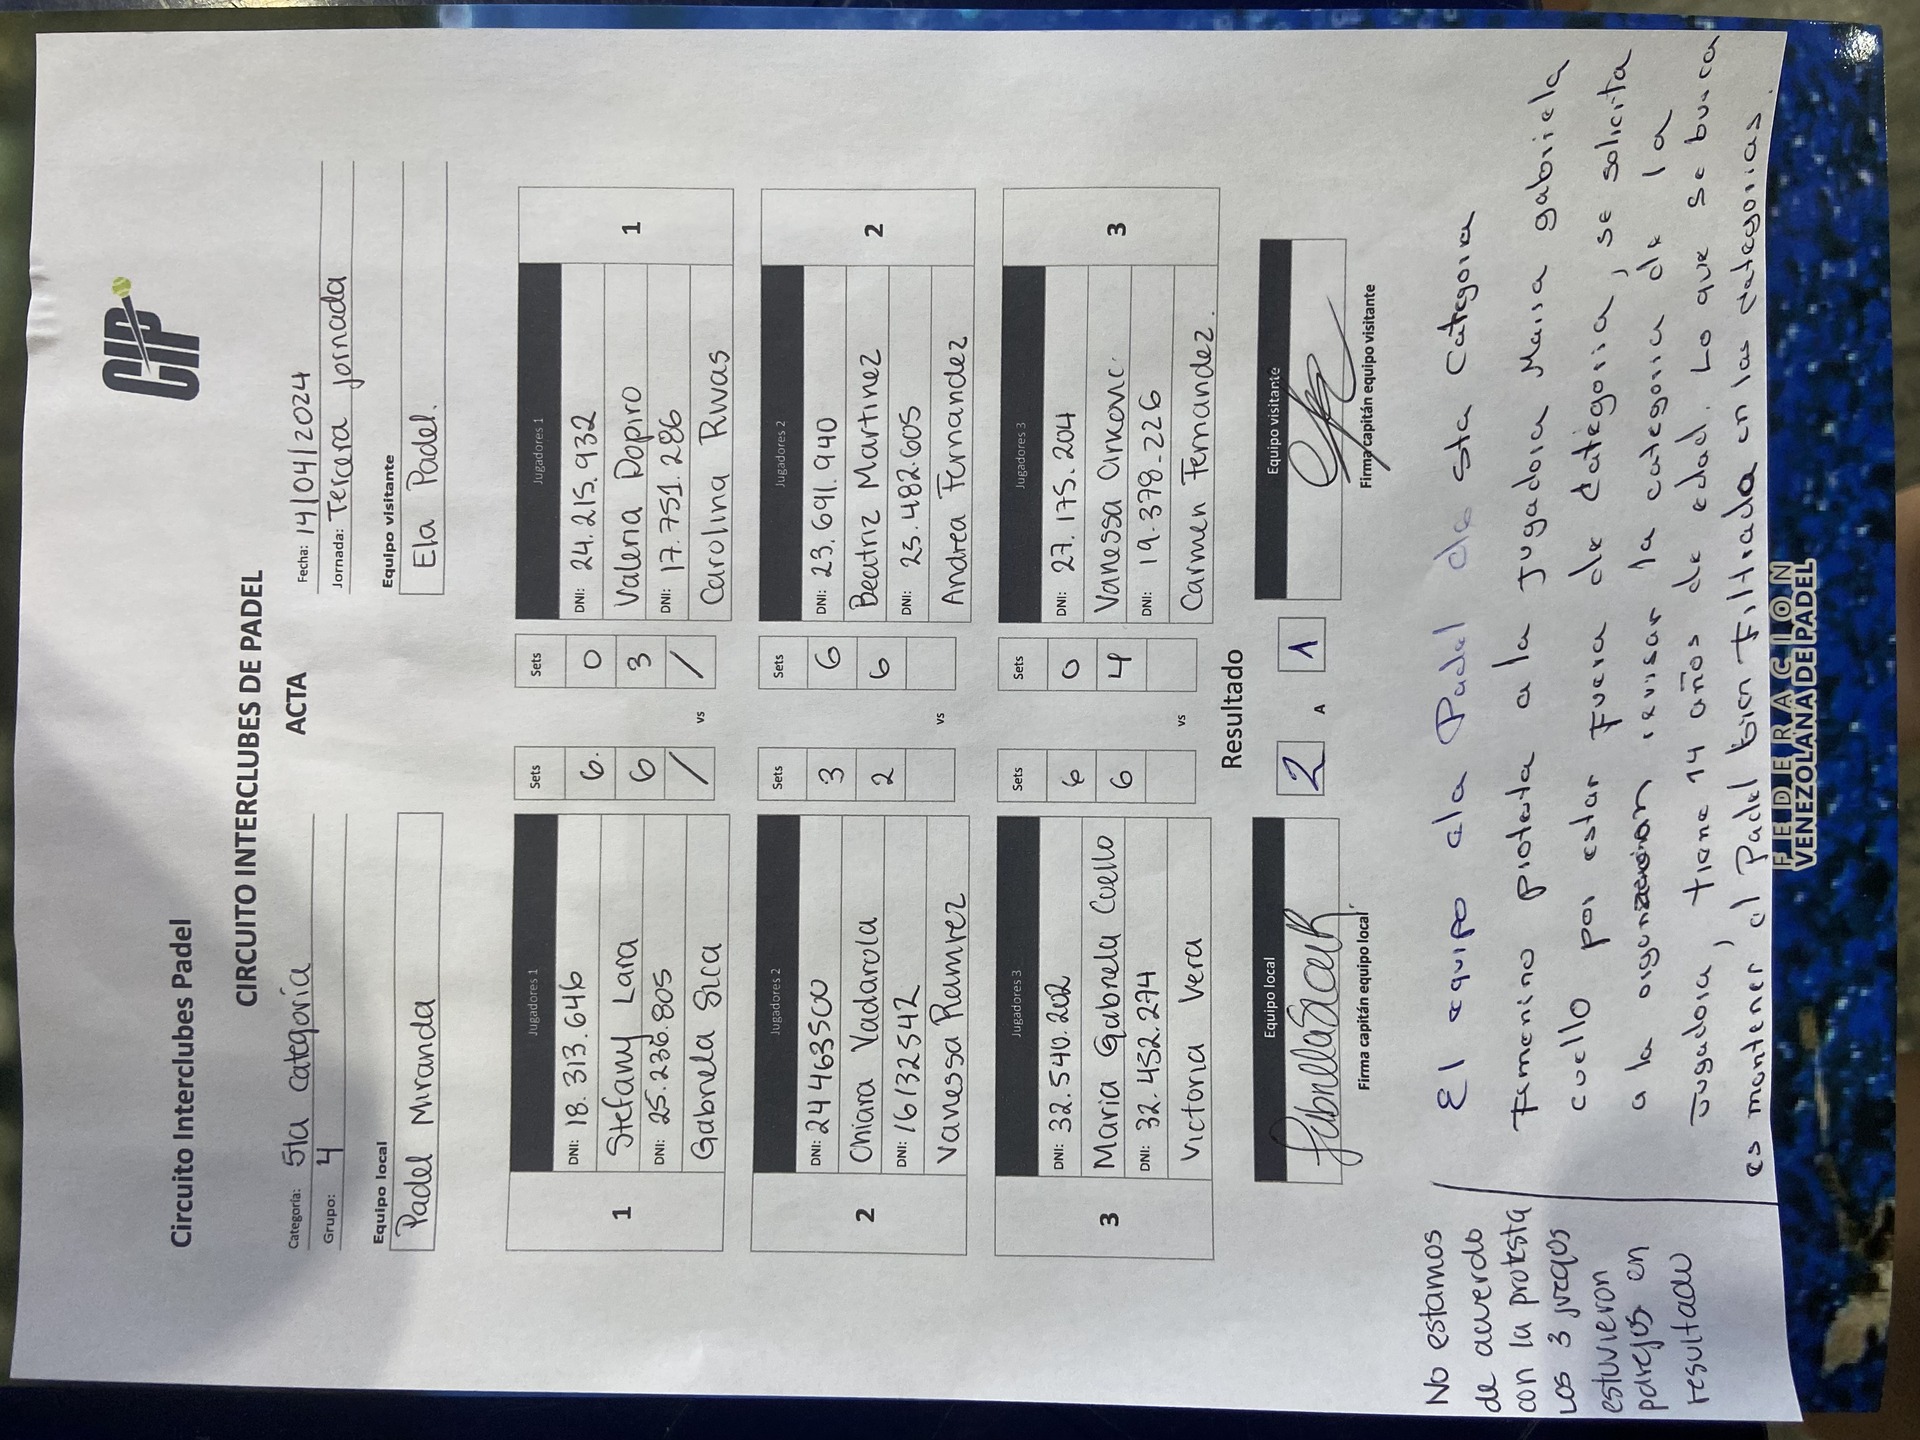 CIP
Circuito Interclubes Padel
CIRCUITO INTERCLUBES DE PADEL
ACTA
Categoría: 5ta Categoría
Grupo: 4
Fecha: 14/04/2024
Jornada: Tercera jornada
Equipo local
Padel Miranda
Equipo visitante
Ela Padel.
1
Jugadores 1
DNI: 18.313.646
Stefany Lara
DNI: 25.236.805
Gabriela Sica
Sets
6.
6
/
vs
Sets
0
3
/
Jugadores 1
DNI: 24.215.932
Valeria Ropiro
DNI: 17.751.286
Carolina Rivas
1
2
Jugadores 2
DNI: 24463500
Chiara Vadarola
DNI: 16132542
Vanessa Ramirez
Sets
3
2
vs
Sets
6
6
Jugadores 2
DNI: 23.691.940
Beatriz Martinez
DNI: 25.482.605
Andrea Fernandez
2
3
Jugadores 3
DNI: 32.540.202
Maria Gabriela Cuello
DNI: 32.452.274
Victoria Vera
Sets
6
6
vs
Sets
0
4
Jugadores 3
DNI: 27.175.204
Vanessa Arkovic
DNI: 19.378.226
Carmen Fernandez.
3
Resultado
Equipo local
Firma capitán equipo local
2 A 1
Equipo visitante
Firma capitán equipo visitante
No estamos
de acuerdo
con la protesta
Los 3 juegos
estuvieron
parejos en
resultado
El equipo ela Padel de 5ta Categoria
Femenino protesta a la jugadora Maria gabriela
cuello por estar Fuera de categoria, se solicita
a la revisar la categoria de la
jugadora, tiene 14 años de edad. Lo que se busca
es mantener el Padel bien Filtrado en las categorias.
FEDERACION
VENEZOLANA DE PADEL